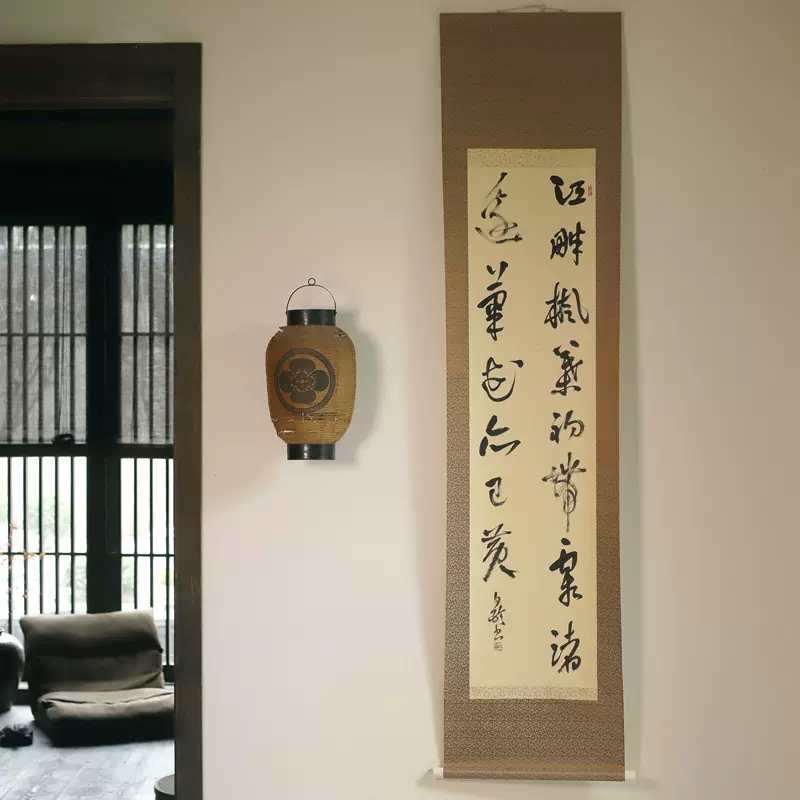 江畔楓葉初帶霜渚
邊菊花亦已黄